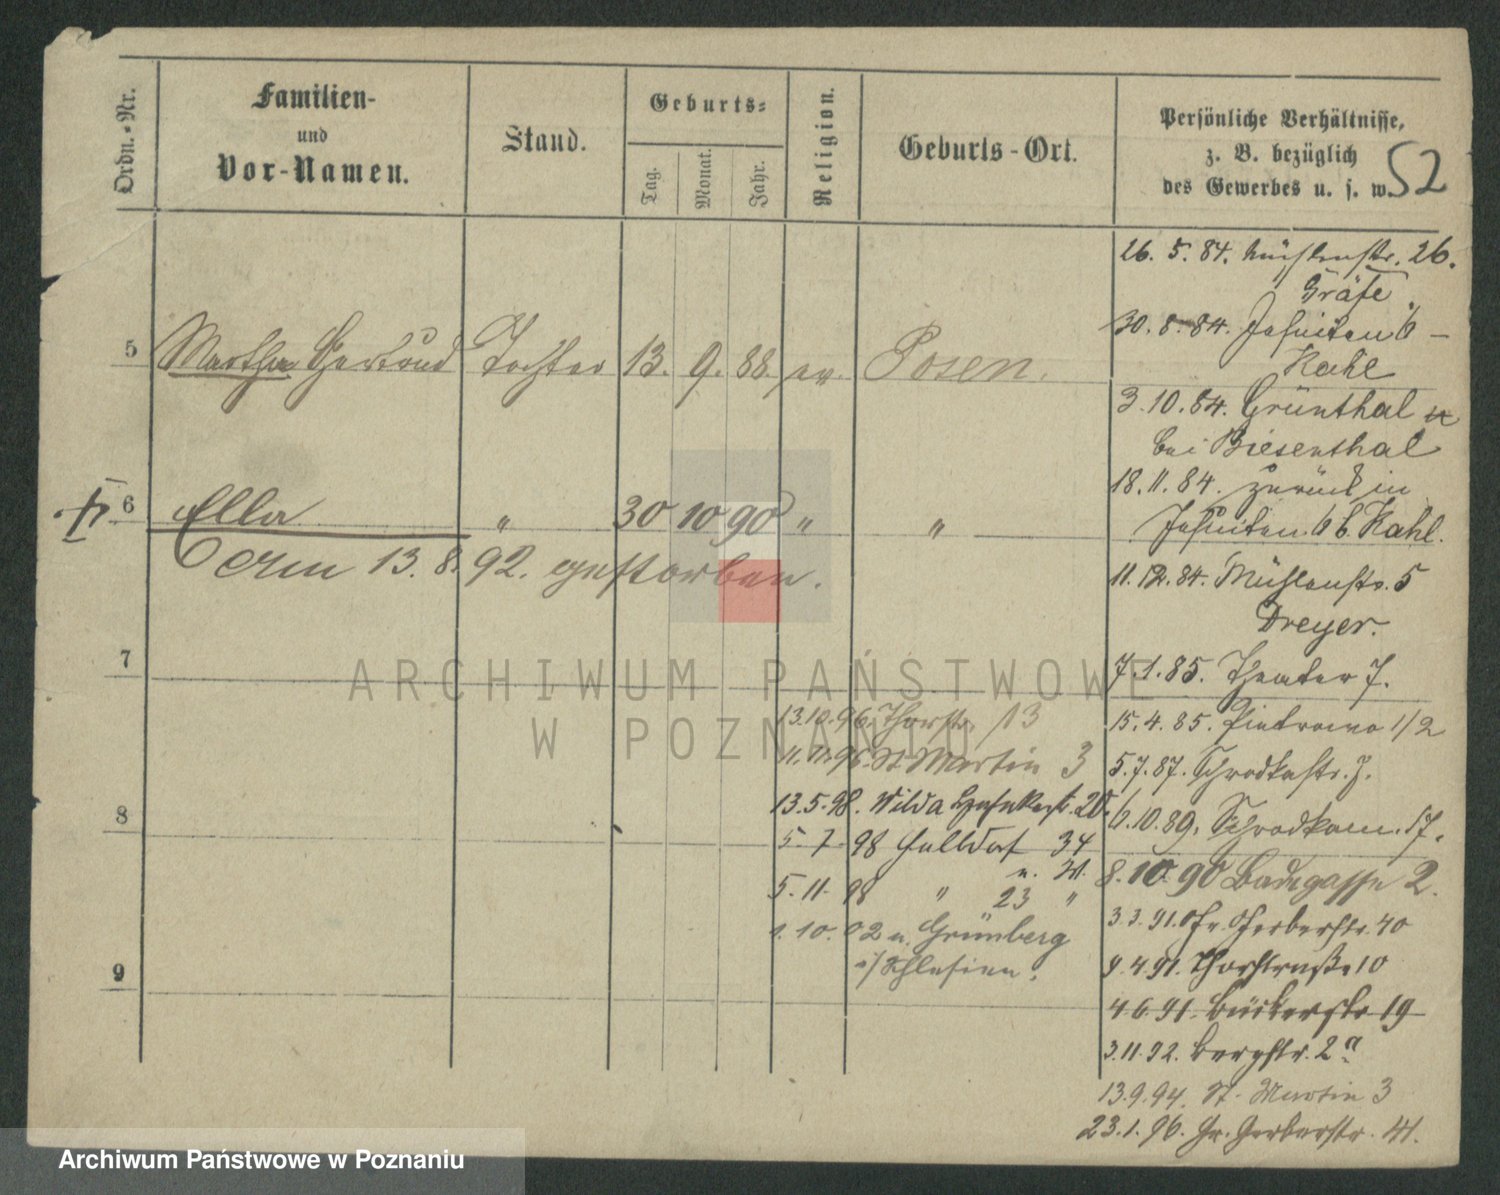 Ordn.-Nr.
Familien-
und
Vor-Namen.
Stand.
Geburts-
Tag.
Monat.
Jahr.
Religion.
Geburts-Ort.
Persönliche Verhältnisse,
z. B. bezüglich
des Gewerbes u. s. w.
52
5 Martha Gertrud Tochter 13. 9. 88. ev. Posen.
6 Ella " 30 10 90 " "
am 13. 8. 92. gestorben.
7
8
9
26. 5. 84. Mühlenstr. 26.
Gräfe
30. 8. 84. Jesuiten 6 –
Kahl
3. 10. 84. Grünthal
bei Biesenthal
18. 11. 84. zurück in
Jesuiten. 6 b. Kahl.
11. 12. 84. Mühlenstr. 5
Dreyer.
7. 1. 85. Theater 7.
15. 4. 85. Pietrowo 1/2
5. 7. 87. Schrodkastr. 7.
6. 10. 89. Schrodkam. 17.
8. 10. 90 Badegasse 2.
3. 3. 91. Gr. Gerberstr. 40
9. 4. 91. Thorstraße 10
4. 6. 91. Bäckerstr 19
3. 11. 92. Bergstr. 2 a
13. 9. 94. St. Martin 3
23. 1. 96. Gr. Gerberstr. 41.
13. 10. 96. Thorstr. 13
11. 11. 96. St Martin 3
13. 5. 98. Wilda 20.
5. 7. 98 34
u. 31.
5. 11. 98 " 23 "
1. 10. 02 n. Grünberg
i/Schlesien.
ARCHIWUM PAŃSTWOWE
W POZNANIU
Archiwum Państwowe w Poznaniu